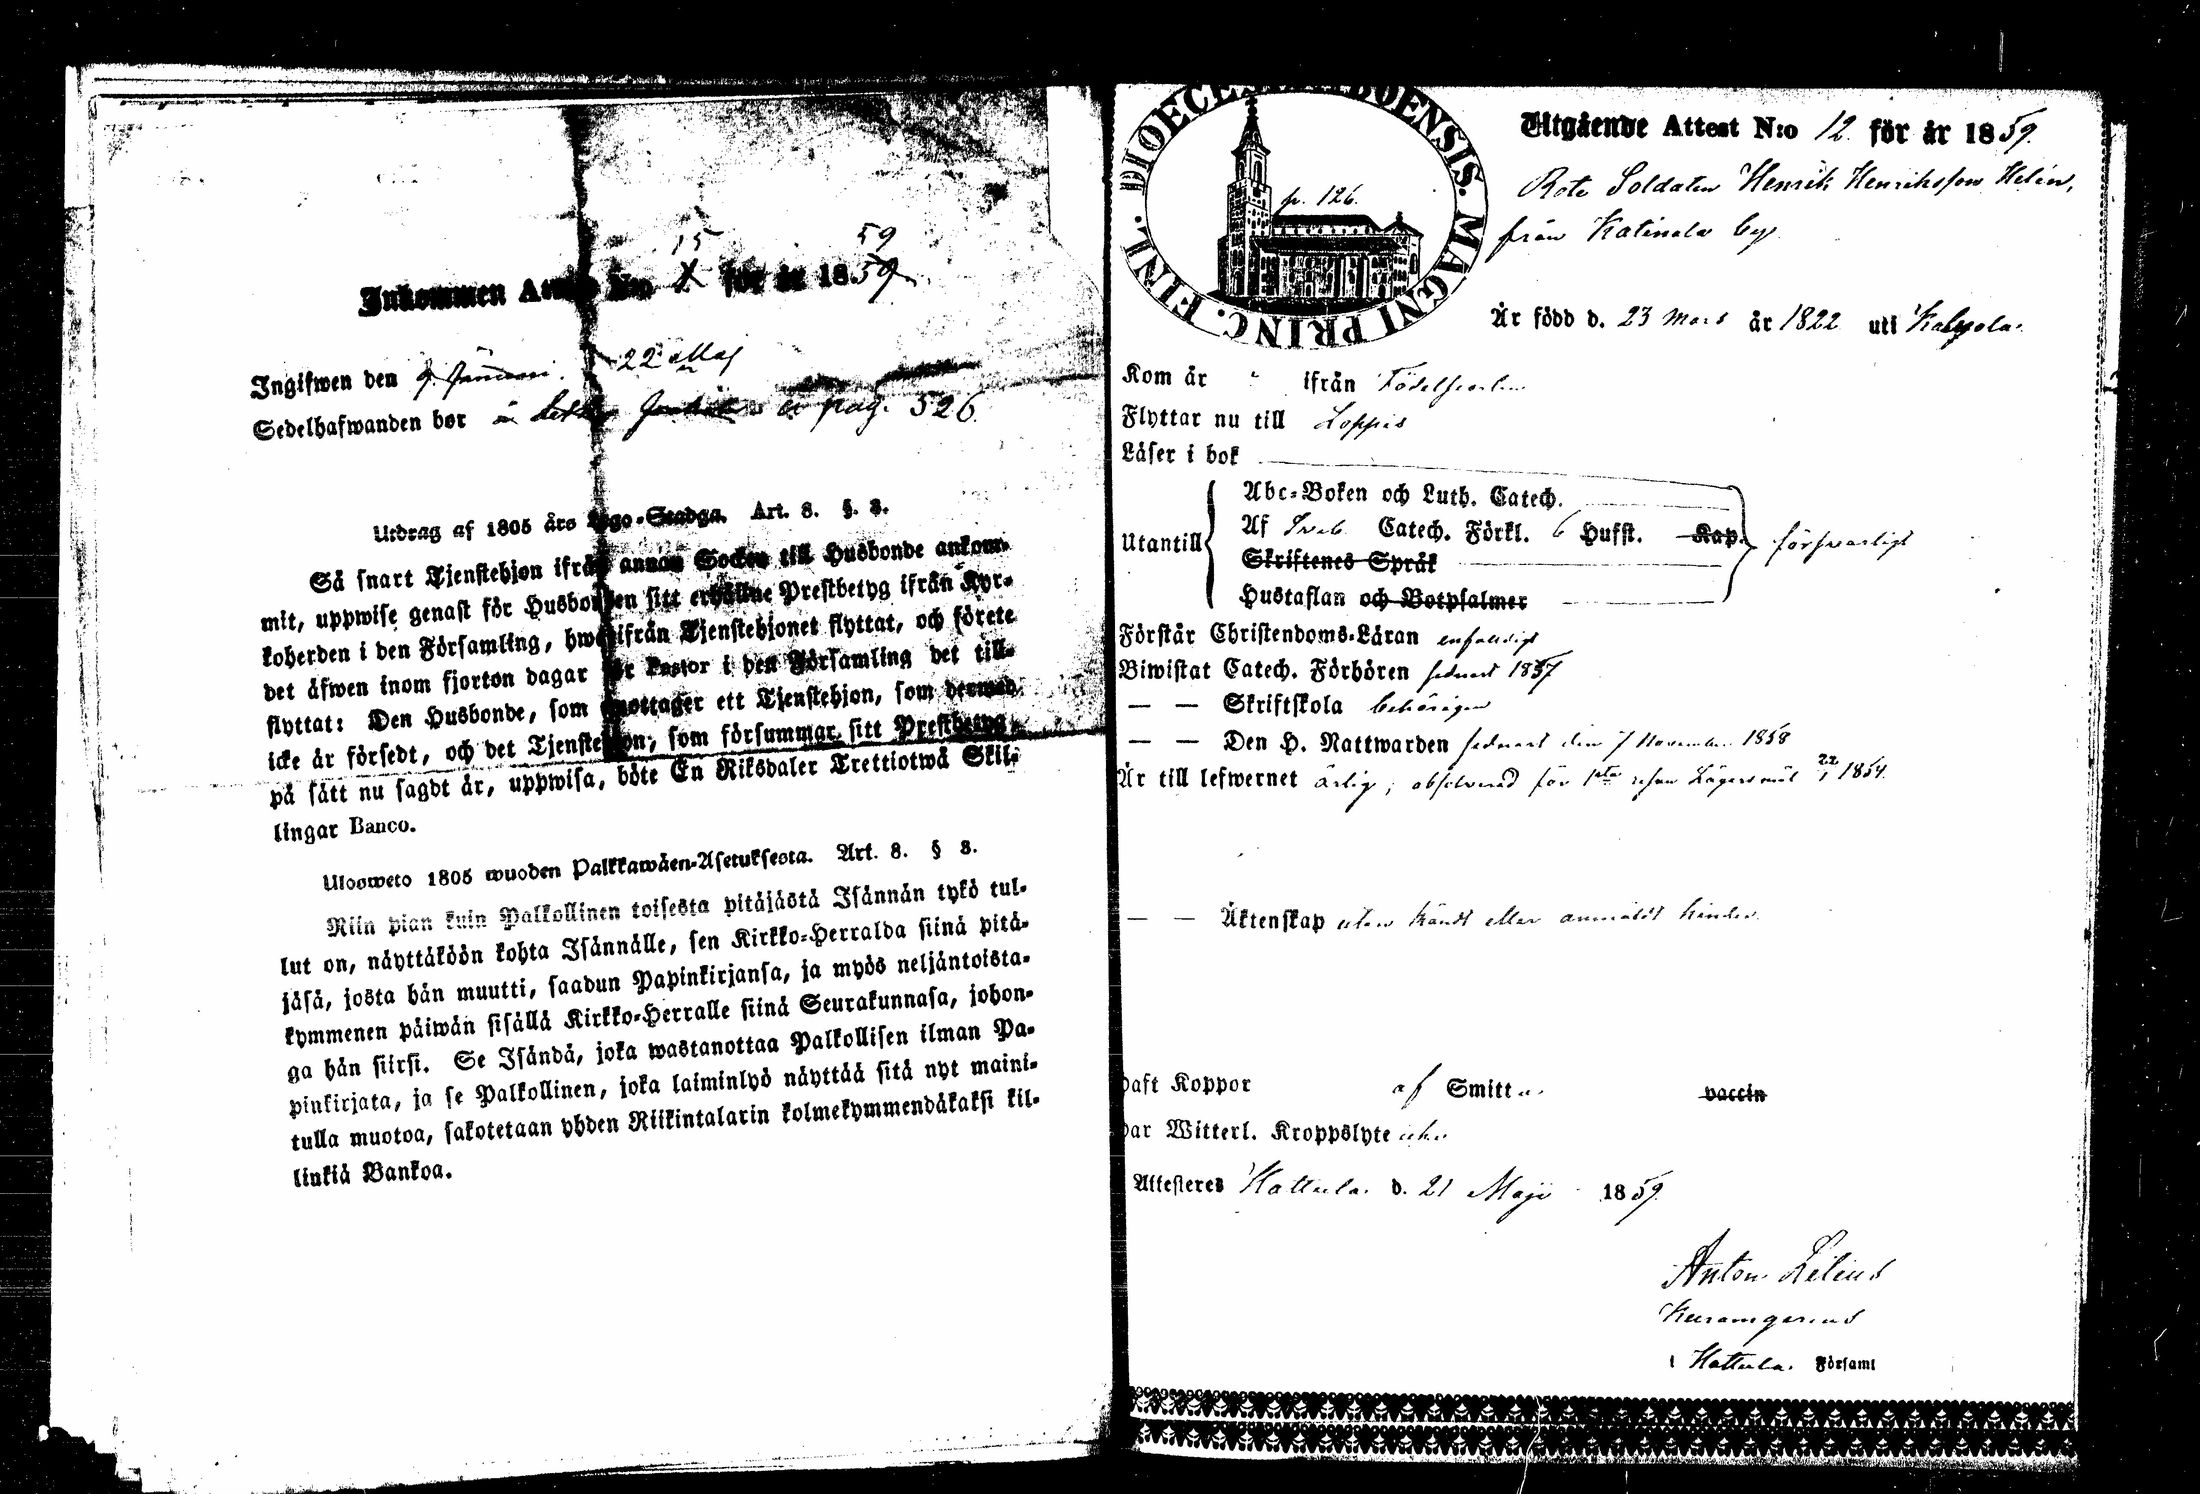 15 59
Inkommen Attest N:o X för år 1859
Ingifwen den 9 Januari. 22 Maj
Sedelhafwanden bor å pag. 526.
Utdrag af 1805 års Lego-Stadga. Art. 8. §. 3.
Så snart Tjenstehjon ifrån annan Socken till Husbonde ankom-
mit, uppwise genast för Husbonden sitt erhållne Prestbetyg ifrån Kyr-
koherden i den Församling, hwarifrån Tjenstehjonet flyttat, och förete
det äfwen inom fjorton dagar för Pastor i den Församling det till-
flyttat: Den Husbonde, som emottager ett Tjenstehjon, som dermed
icke är försedt, och det Tjenstehjon, som försummar sitt Prestbetyg,
på sätt nu sagdt är, uppwisa, böte En Riksdaler Trettiotwå Skil-
lingar Banco.
Ulosweto 1805 wuoden Palkkawäen-Asetuksesta. Art. 8. § 3.
Niin pian kuin Palkollinen toisesta pitäjästä Isännän tykö tul-
lut on, näyttäköön kohta Isännälle, sen Kirkko-Herralda siinä pitä-
jäsä, josta hän muutti, saadun Papinkirjansa, ja myös neljäntoista-
kymmenen päiwän sisällä Kirkko-Herralle siinä Seurakunnasa, johon-
ga hän siirsi. Se Isändä, joka wastanottaa Palkollisen ilman Pa-
pinkirjata, ja se Palkollinen, joka laiminlyö näyttää sitä nyt maini-
tulla muotoa, sakotetaan yhden Riikintalarin kolmekymmendäkaksi kil-
linkiä Bankoa.
DIOECESIS ABOENSIS. MAGNI PRINC. FINL.
p. 126.
Utgående Attest N:o 12. för år 1859.
Rote Soldaten Henrik Henriksson Helin,
från Katinala by
Är född d. 23 Mars år 1822 uti Kalvola.
Kom år " ifrån Födelseorten
Flyttar nu till Loppis
Läser i bok
Abc-Boken och Luth. Catech.
Utantill Af Sveb. Catech. Förkl. 6 Hufst. Kap. försvarligt
Skriftenes Språk
Hustaflan och Botpsalmer
Förstår Christendoms-Läran enfaldigt
Biwistat Catech. Förhören sednast 1857
— — Skriftskola behörigen
— — Den H. Nattwarden sednast den 7 November 1858
Är till lefwernet ärlig; absolverad för 1sta resan Lägersmål 22/1 1854.
— — Äktenskap utan kändt eller anmäldt hinder.
Haft Koppor af Smitta vaccin
Har Witterl. Kroppslyte
Attesteres Hattula d. 21 Maji 1859.
Anton Lilius
i Hattula Församl